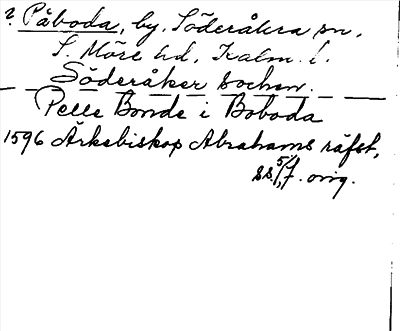 ? Påboda, by, Söderåkra sn,
S. Möre hd, Kalm. l.
Söderåker sochen.
Pelle Bonde i Boboda
1596 Ärkebiskop Abrahams räfst,
orig.